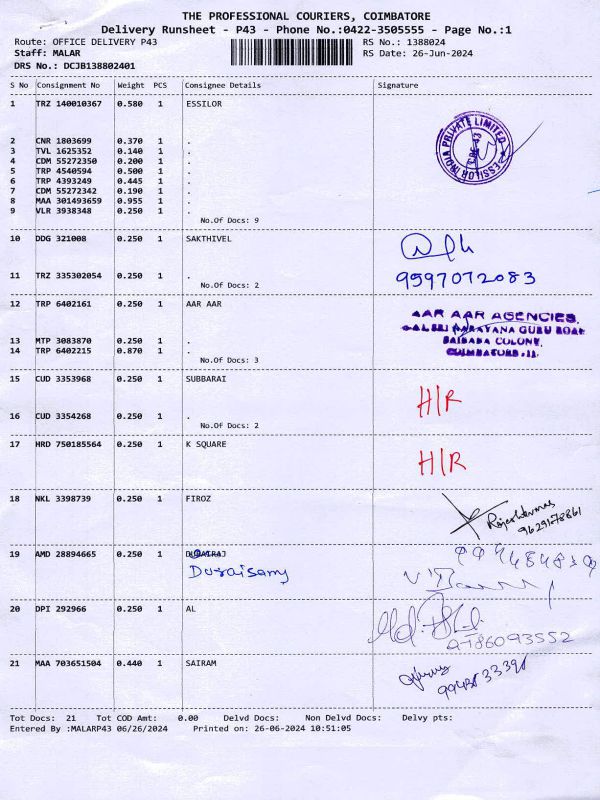 THE PROFESSIONAL COURIERS, COIMBATORE
Delivery Runsheet - P43 - Phone No.:0422-3505555 - Page No.:1
Route: OFFICE DELIVERY P43 RS No.: 1388024
Staff: MALAR RS Date: 26-Jun-2024
DRS No.: DCJB138802401
S No Consignment No Weight PCS Consignee Details Signature
1 TRZ 140010367 0.580 1 ESSILOR
ESSILOR INDIA PRIVATE LIMITED
2 CNR 1803699 0.370 1 .
3 TVL 1625352 0.140 1 .
4 CDM 55272350 0.200 1 .
5 TRP 4540594 0.500 1 .
6 TRP 4393249 0.445 1 .
7 CDM 55272342 0.190 1 .
8 MAA 301493659 0.955 1 .
9 VLR 3938348 0.250 1 .
No.Of Docs: 9
10 DDG 321008 0.250 1 SAKTHIVEL
11 TRZ 335302054 0.250 1 . 9597072083
No.Of Docs: 2
12 TRP 6402161 0.250 1 AAR AAR
AAR AAR AGENCIES,
NARAYANA GURU ROAD
SAIBABA COLONY,
COIMBATORE-11.
13 MTP 3083870 0.250 1 .
14 TRP 6402215 0.870 1 .
No.Of Docs: 3
15 CUD 3353968 0.250 1 SUBBARAI
H/R
16 CUD 3354268 0.250 1 .
No.Of Docs: 2
17 HRD 750185564 0.250 1 K SQUARE
H/R
18 NKL 3398739 0.250 1 FIROZ
9629178861
19 AMD 28894665 0.250 1 DURAIRAJ
Duraisamy
20 DPI 292966 0.250 1 AL
21 MAA 703651504 0.440 1 SAIRAM
Tot Docs: 21 Tot COD Amt: 0.00 Delvd Docs: Non Delvd Docs: Delvy pts:
Entered By :MALARP43 06/26/2024 Printed on: 26-06-2024 10:51:05